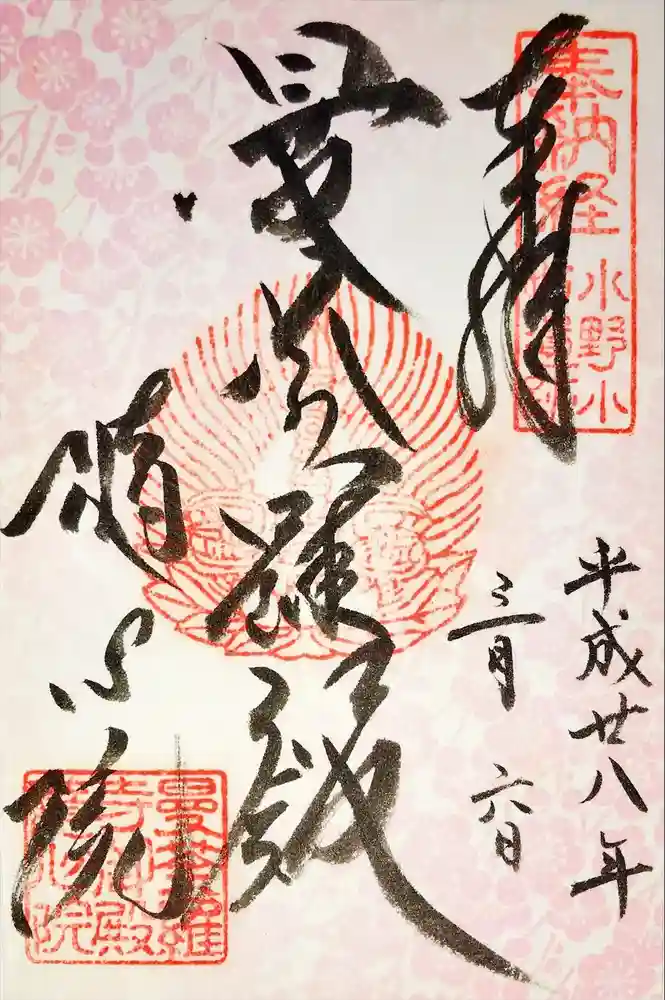 奉納経
小野小
奉拝
平成廿八年
三月六日
曼荼羅殿
随心院
曼荼羅
寺御殿
随心院